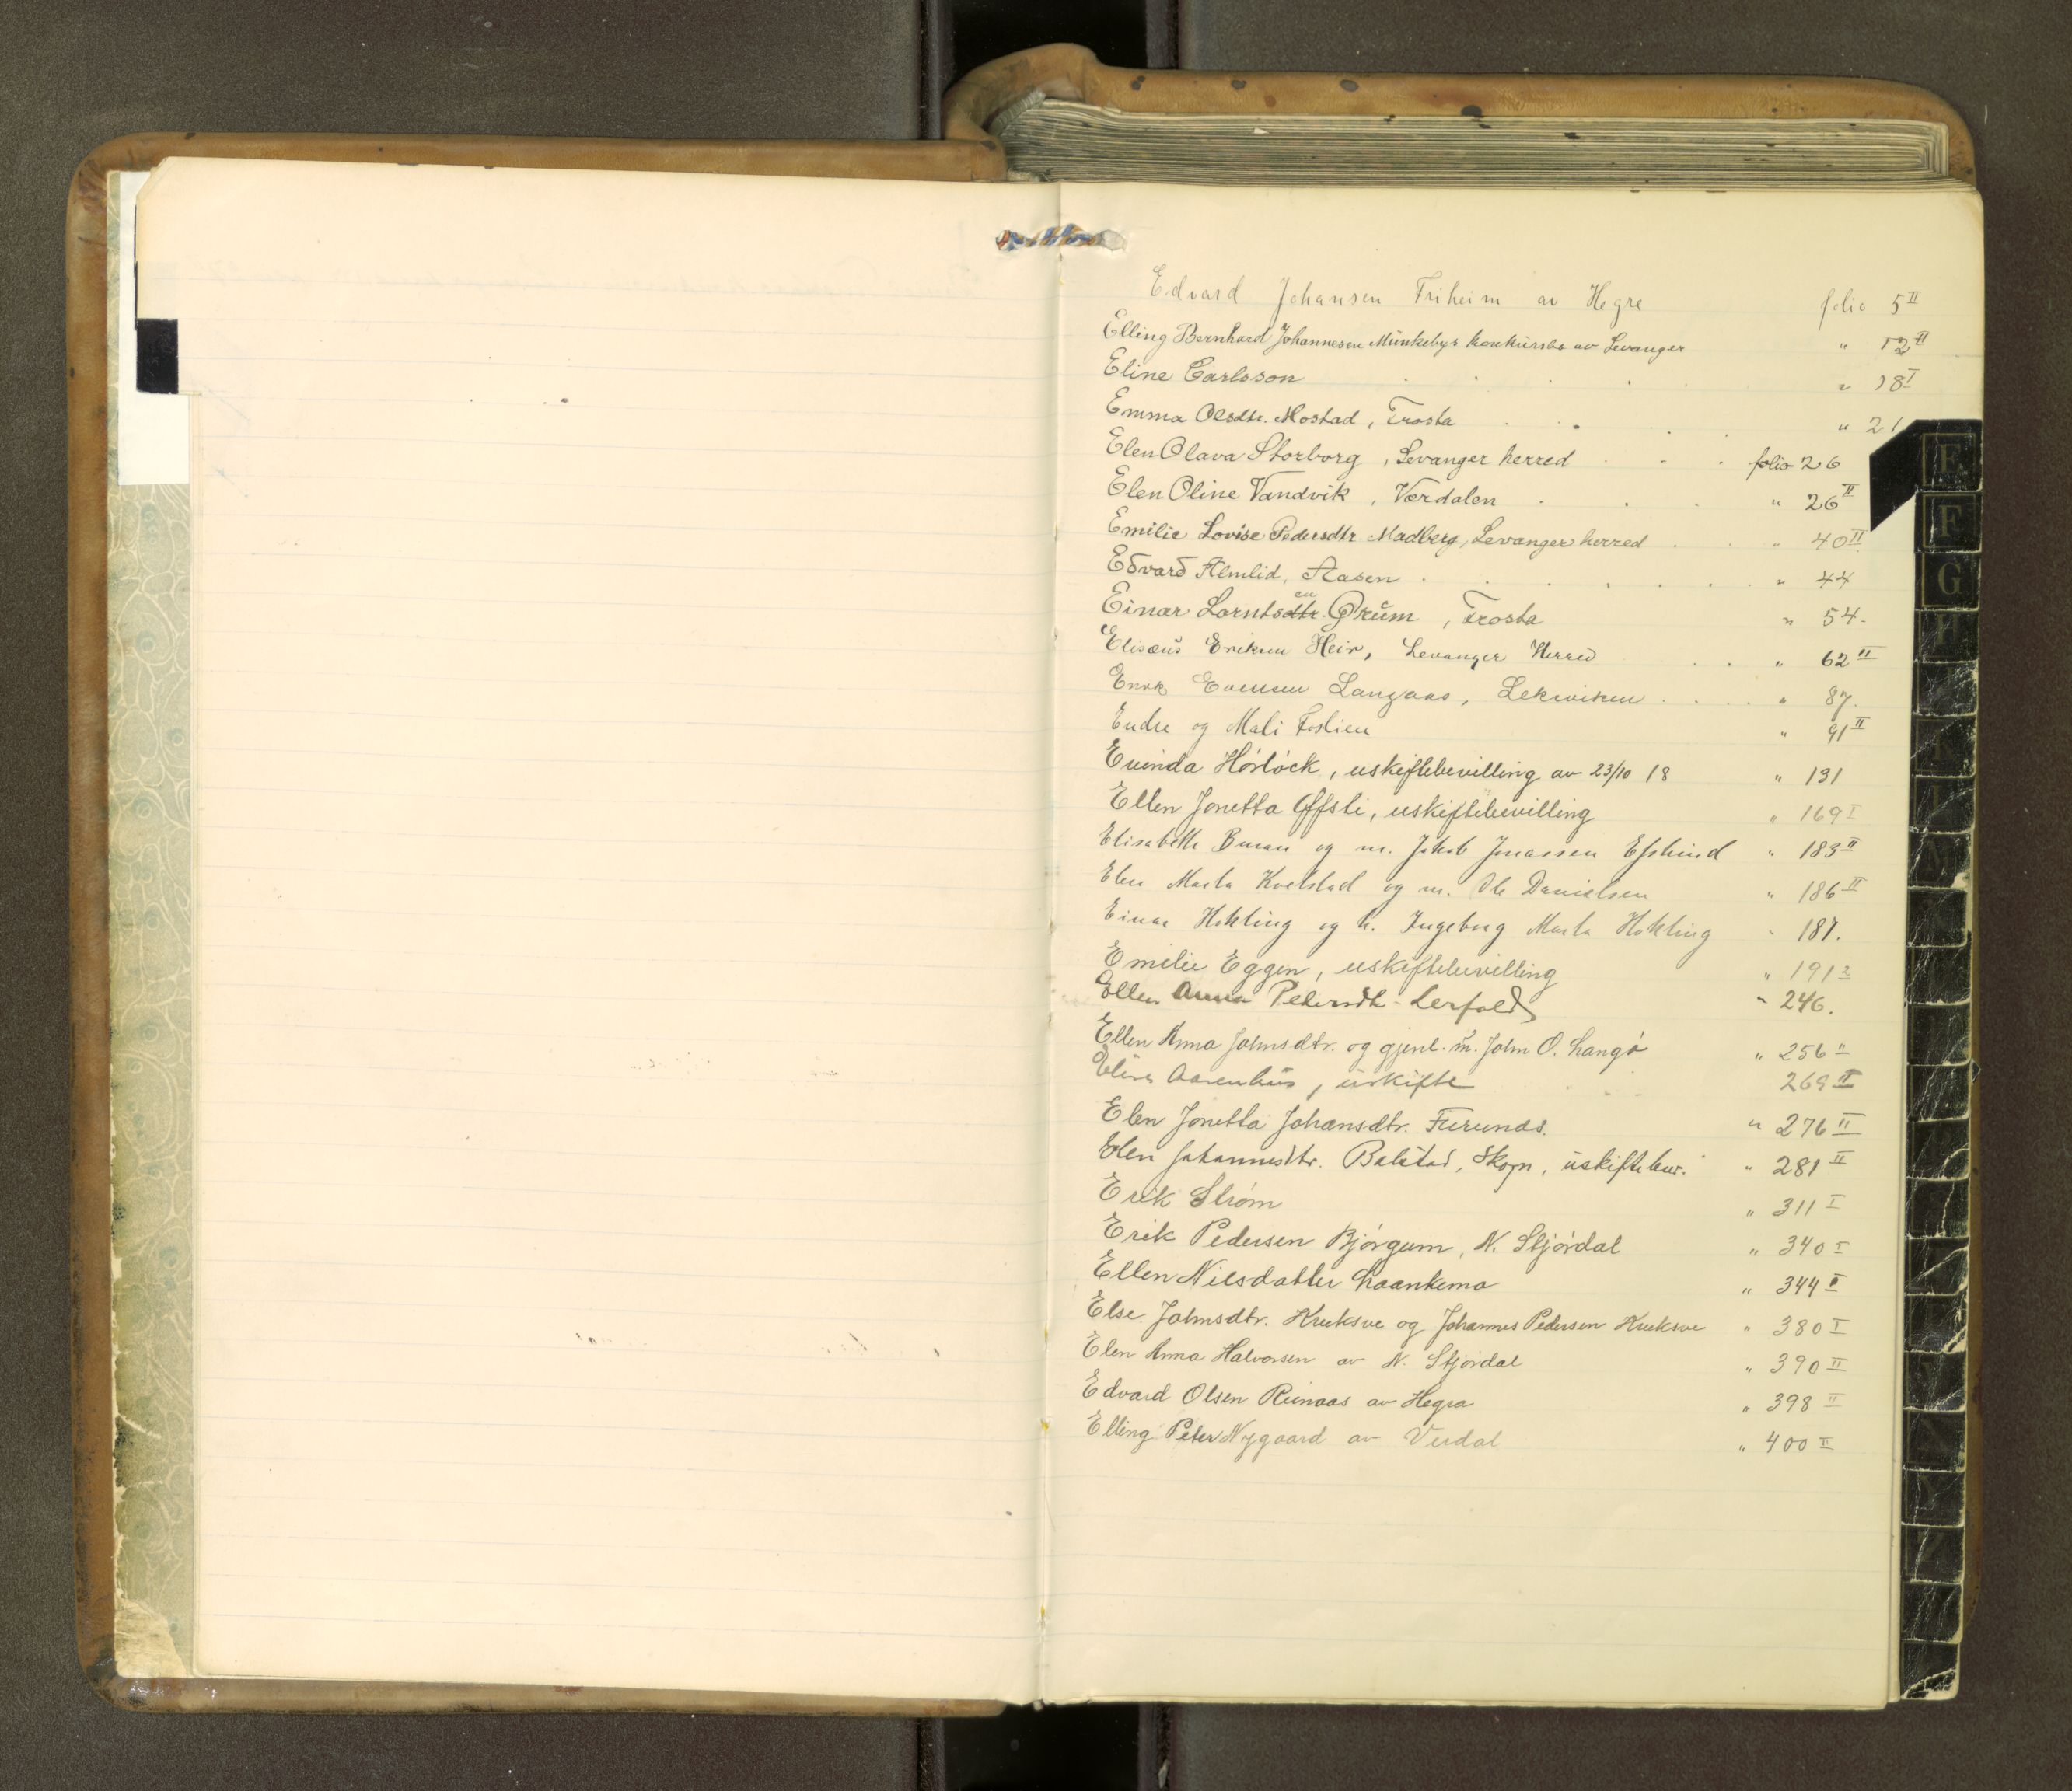 Edvard Johansen Friheim av Hegre folio 5 II
Elling Bernhard Johannesen Munkebys konkursbo av Levanger " 12 II
Eline Carlsson " 18 I
Emma Olsdtr. Mostad, Frosta " 21
Elen Olava Storborg, Levanger herred folio 26
Elen Oline Vandvik, Værdalen " 26 II
Emilie Lovise Pedersdtr Madberg, Levanger herred " 40 II
Edvard Almlid, Aasen " 44
Einar Lorntsdtr. en Ørum, Frosta " 54.
Elisæus Eriksen Heir, Levanger Herred " 62 II
Erik Evensen Langaas, Leksviken " 87.
Endre og Mali Foslien " 91 II
Evinda Hörlöck, uskiftebevilling av 23/10 18 " 131
Ellen Jonetta Offsti, uskiftebevilling " 169 I
Elisabeth og m. Jakob Jonassen " 183 II
Elen Marta Kvelstad og m. Ole Danielsen " 186 II
Einar Hokling og h. Ingeborg Marta Hokling " 187.
Emilie Eggen, uskiftebevilling " 191 2
Ellen Anna Pedersdt. Lerfald " 246.
Ellen Anna Johnsdtr. og gjenl. m. John O. Langö " 256 II
Elise Aasenhus, uskifte 269 II
Elen Jonetta Johansdtr. Furunds. " 276 II
Elen Johannesdtr. Balstad, Skogn, uskiftebev. " 281 II
Erik Strøm " 311 I
Erik Pedersen Bjørgum, N. Stjørdal " 340 I
Ellen Nilsdatter Laankemo " 344 I
Else Johnsdtr. Kruksve og Johannes Pedersen Kruksve " 380 I
Elen Anna Halvorsen av N. Stjørdal " 390 II
Edvard Olsen Reinaas av Hegra " 398 II
Elling Peter Nygaard av Verdal " 400 II
E
F
G